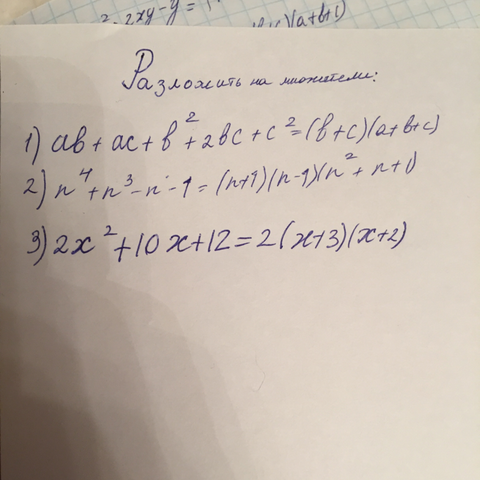 2xy-y=
(a+b+c)
Разложить на множители:
1) ab+ac+b²+2bc+c²=(b+c)(a+b+c)
2) n⁴+n³-n-1=(n+1)(n-1)(n²+n+1)
3) 2x²+10x+12=2(x+3)(x+2)